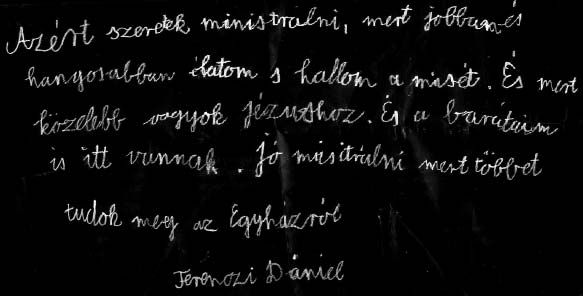 Azért szeretek ministrálni, mert jobban és
hangosabban látom s hallom a misét. És mert
közelebb vagyok Jézushoz. És a barátaim
is itt vannak. Jó misitrálni mert többet
tudok meg az Egyházról
Ferenczi Dániel